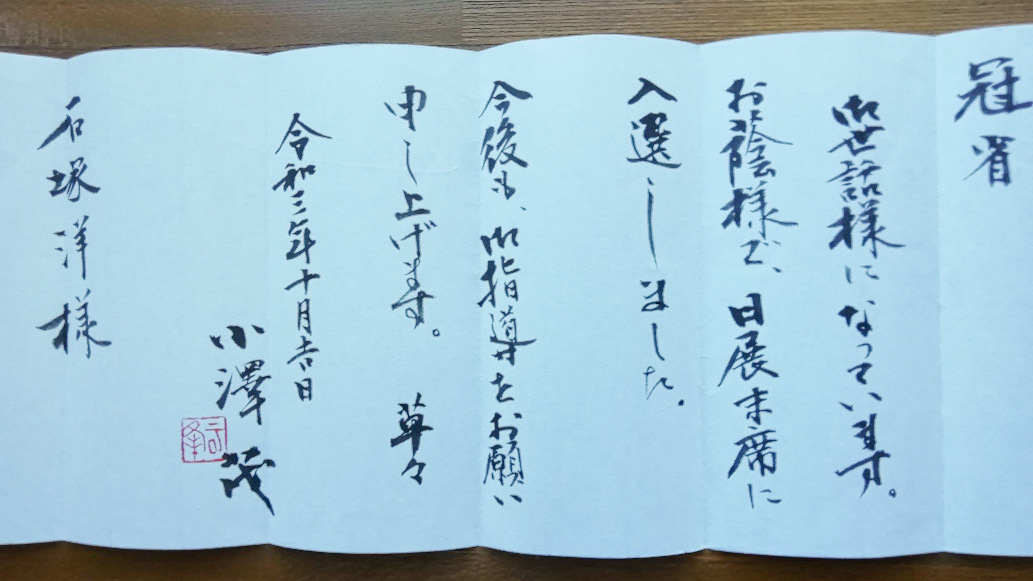 冠省
御世話様になっています。
お陰様で、日展末席に
入選しました。
今後も、御指導をお願い
申し上げます。 草々
令和三年十月吉日
小澤茂
石塚洋様